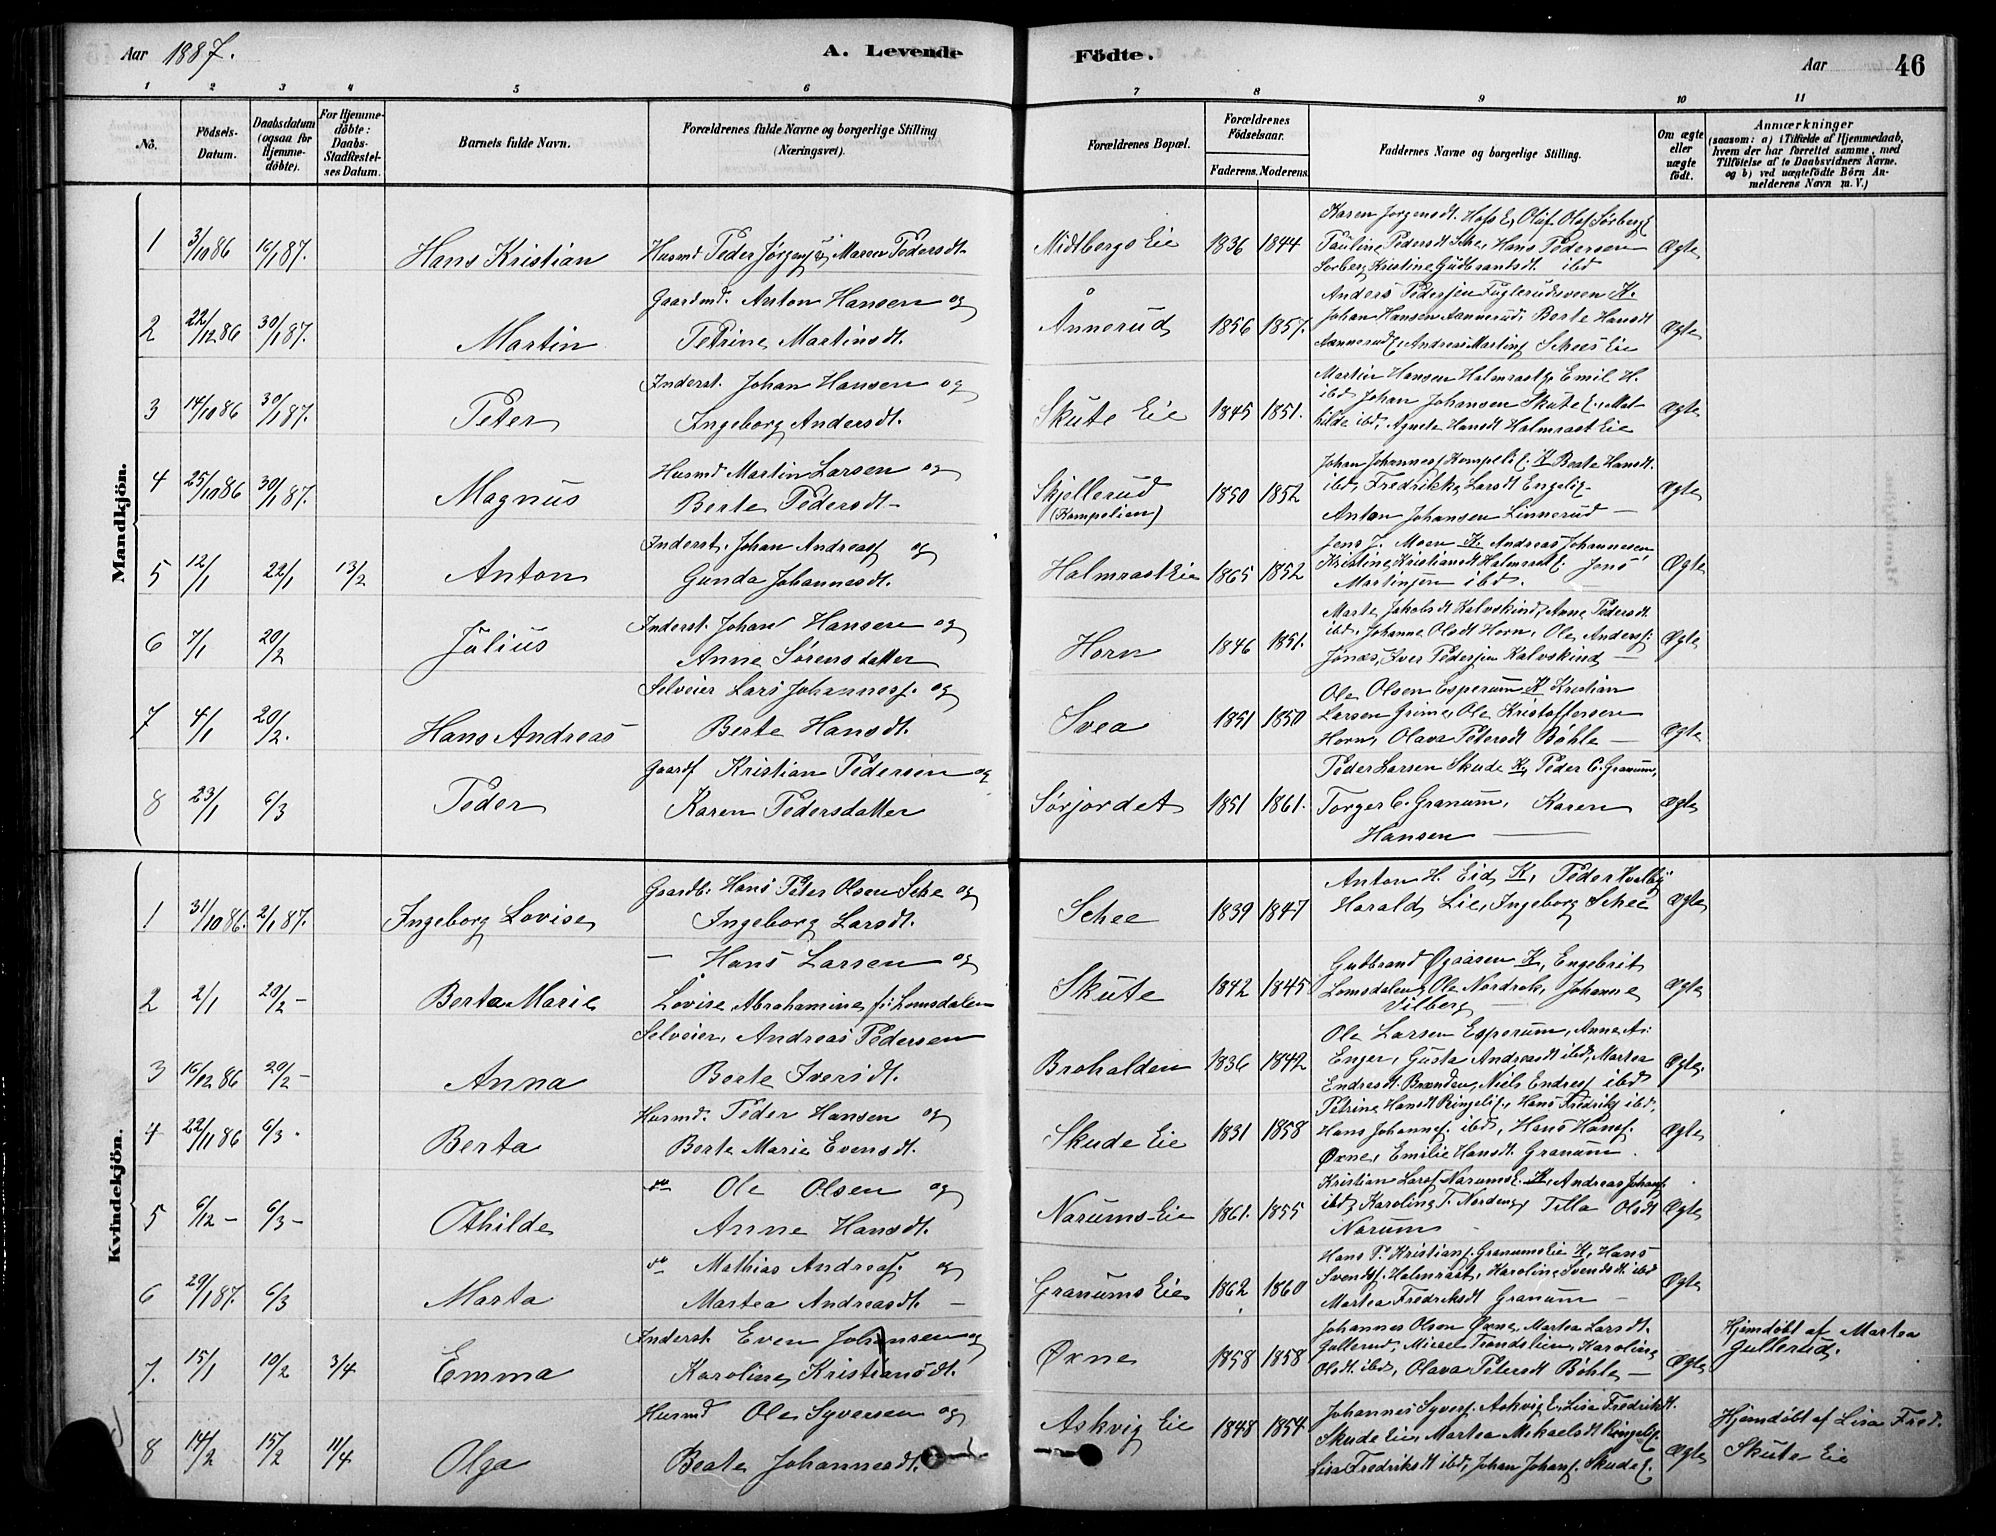 Aar 1887. A. Levende Födte. Aar 46
1 2 3 4 5 6 7 8 9 10 11
No.
Födsels-Datum.
Daabsdatum (ogsaa for Hjemmedöbte).
For Hjemmedöbte: Daabs-Stadfæstelses Datum.
Barnets fulde Navn.
Forældrenes fulde Navne og borgerlige Stilling (Næringsvei).
Forældrenes Bopæl.
Forældrenes Födselsaar.
Faderens. Moderens.
Faddernes Navne og borgerlige Stilling.
Om ægte eller uægte födt.
Anmærkninger
(saasom: a) i Tilfælde af Hjemmedaab,
hvem der har forrettet samme, med
Tilföielse af to Daabsvidners Navne.
og b) ved uægtefödte Börn Anmelderens Navn m. V.)
Mandkjön.
1 3/10 86 16/1 87. Hans Kristian Husmd Peder Jørgens. & Maren Pedersdt. Midtbergs Eie 1836 1844 Ægte
Karen Jørgensdt. Hofs E, Oluf Olsf Sørberg E
Pauline Pedersdt Sche, Hans Pedersen
Sørberg, Kristine Gudbrandsdt. ibd
2 22/12 86 30/1 87. Martin Gaardmd. Anton Hansen og
Petrine Martinsdt. Ånnerud 1856 1857. Ægte
Anders Pedersen Fuglerudsveen K.
Johan Hansen Aannerud, Berte Hansdt
Aannerud E, Andreas Martins Schees Eie
3 14/10 86 30/1 87. Peter Inderst. Johan Hansen og
Ingeborg Andersdt. Skute Eie 1845 1851. Ægte
Martin Hansen Halmrast E, Emil H.
ibd, Johan Johansen Skute E., Mathilde ibd, Agnete Hansdt Halmrast Eie
4 25/10 86 30/1 87. Magnus Husmd Martin Larsen og
Berte Pedersdt Skjellerud (Kompelien) 1850 1852 Ægte
Johan Johannesf Kompeli E. K Beate Hansdt.
ibd, Fredrikke Larsdt Engelie
Anton Johansen Linnerud
5 12/1 22/1 13/2 Anton Inderst. Johan Andreasf og
Gunda Johannesdt. Halmrast Eie 1865 1852 Ægte
Jens J. Moen K. Andreas Johannesen
Kristine Kristiansdt Halmrast E. Jens
Martinsen ibd.
6 7/1 20/2 Julius Inderst. Johan Hansen og
Anne Sørensdatter Horn 1846 1851. Ægte
Marte Jakobsdt Kalvskind, Anne Pedersdt
ibd, Johanne Olsdt Horn, Ole Andersf.
Jønas, Iver Pedersen Kalvskind
7 4/1 20/2. Hans Andreas Selveier Lars Johannesf. og
Berte Hansdt. Svea 1851 1850 Ægte
Ole Olsen Esperum K Kristian
Larsen Grime, Ole Kristoffersen
Horn, Olava Petersdt Bøhle
8 23/1 6/3 Peder Gaardf Kristian Pedersen og
Karen Pedersdatter Sørjordet 1851 1861. Ægte
Peder Larsen Skude K, Peder C. Granum,
Torger C. Granum, Karen
Hansen
Kvindekjön.
1 31/10 86. 2/1 87. Ingeborg Lovise Gaardb. Hans Peter Olsen Sche og
Ingeborg Larsdt. Schee 1839 1847 Ægte
Anton H. Eid K, Peder Hvalby
Harald Lie, Ingeborg Schee
2 2/1 20/2 - Berta Marie - Hans Larsen og
Lovise Abrahamine f: Lomsdalen Skute 1842 1845 Ægte
Gudbrand Øgaarsen K, Engebrit
Lomsdalen, Ole Nordrok, Johanne
Vilberg
3 16/12 86 20/2 - Anna Selveier, Andreas Pedersen
Berte Iversdt. Brohalden 1836 1842 Ægte.
Ole Larsen Esperum, Anne A:
Enger, Gusta Andreasdt ibd, Marte
Endresdt. Brænden, Niels Endresf ibd
4 22/11 86 6/3. Berta Husmd. Peder Hansen og
Berte Marie Evensdt. Skude Eie 1831 1858 Ægte
Petrine Hansdt Ringeli E., Hans Fredrikf ibd,
Hans Johannesf. ibd, Hans Hansf.
Øxne, Emilie Hansdt. Granum.
5 6/12 - 6/3 - Othilde do Ole Olsen og
Anne Hansdt. Narums Eie 1861. 1855 Ægte
Kristian Larsf Narums E. K, Andreas Johansf
ibd, Karoline T. Nordeng, Tilla Olsdt
Narum
6 29/1 87. 6/3 Marta do Mathias Andreasf. og
Martea Andreasdt. Granums Eie 1862 1860 Ægte
Hans P. Kristiansf. Granums Eie K, Hans
Svendsf. Halmrast, Karoline Svendsdt. ibd
Martea Fredriksdt Granum
7. 15/1 10/2 3/4 Emma Inderst. Even Johansen og
Karoline Kristiansdt. Øxne 1858 1858 Ægte
Johannes Olsen Øxne, Martea Larsdt.
Gullerud, Micael Trondslien, Karoline
Olsdt. ibd, Olava Petersdt Bøhle
Hjemdøbt af Martea
Gullerud.
8 14/2 15/2 11/4 Olga Husmd Ole Syversen og
Beate Johannesdt. Askvig Eie 1848 1854 Ægte
Johannes Syversf. Askvig E, Lisa Fredriksdt.
Skude Eie, Martea Mikaelsdt Ringeli E.
Lisa Fredriksdt ibd, Johan Johansf. Skude E.
Hjemdøbt af Lisa Fred.
Skute Eie